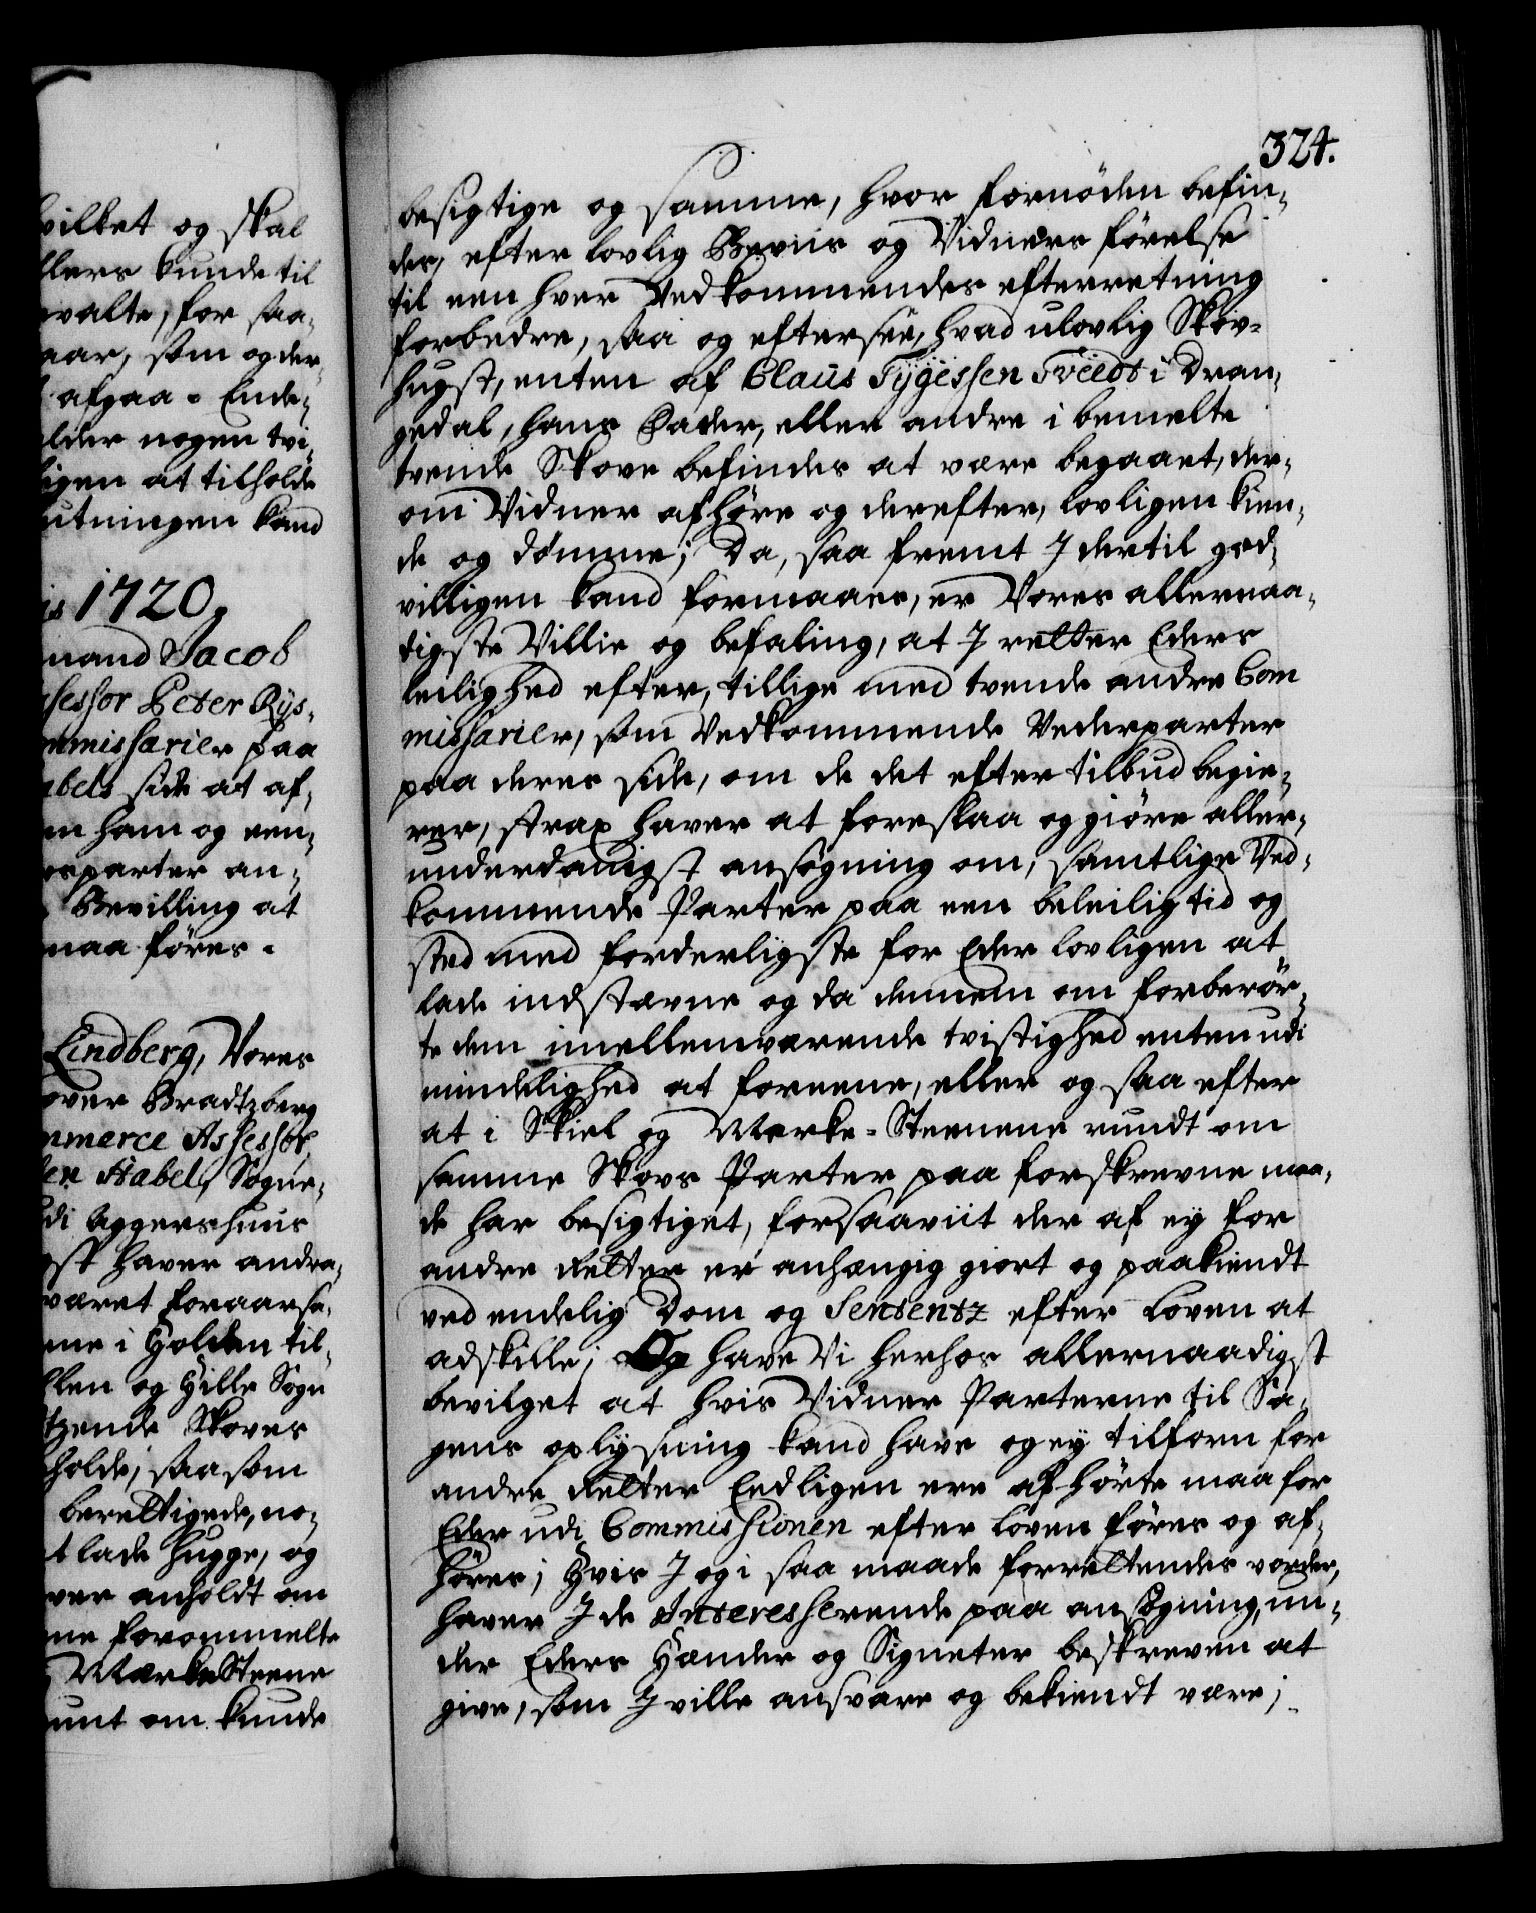 vilket og skal
llers kunde til
valte, for saa-
aar, som og der
afgaa. Ende-
lder nogen tvi
igen at tilholde
utningen kand
is 1720.
mand Jacob
sessor Peter Rÿs-
mmissarier paa
abels side at af-
en ham og een-
rparter an-
Bevilling at
maa føres.
Lindberg, Vores
over Bradtzberg
mmerce Assessor
en Stabels Sogne-
di Aggershuus
st haver andra-
været foraarsa-
ene i Holden til-
len og Hille Sogn
tzende Skoves
holde, saasom
berettigede, no-
t lade hugge, og
ver anholdt om
ne forommelte
Mærke Steene
unt om kunde
324.
besigtige og samme, hvor fornøden befin-
des, efter lovlig Beviis og Vidners førelse
til een hver Vedkommendes efterretning
forbedre, saa og eftersee, hvad ulovlig Skov-
hugst, enten af Claus Tÿgessen Tveedt i Dran-
gedal, hans Fader, eller andre i bemelte
tvende Skove befindes at være begaaet, der-
om Vidner afhøre og derefter, lovligen kien-
de og dømme; Da, saa fremt I dertil god-
villigen kand formaaes, er Vores allernaa-
digste Villie og befaling, at I retter Eders
leilighed efter, tillige med tvende andre Com
missarier, som Vedkommende Vederparter
paa deres side, om de det efter tilbud begie-
rer, strax haver at foreslaa og giøre aller-
underdanigst ansøgning om, samtlige Ved-
kommende Parter paa een beleilig tid og
sted med forderligste for Eder lovligen at
lade indstævne og da dennem om forberør-
te dem imellemværende tvistighed enten udi
mindelighed at foreene, eller og saa efter
at i Skiel og Mærke-Steenene rundt om
samme Skovs Parter paa forskrevne maa-
de har besigtiget, forsaaviit der af ey for
andre Retter er anhængig giort og paakiendt
ved endelig Dom og Sentents efter Loven at
adskille; Og have Vi herhos allernaadigst
bevilget at hvis Vidner Parterne til Sa-
gens oplysning kand have og ey tilforn for
andre Retter Eedligen ere afhørte maa for
Eder udi Commissionen efter Loven føres og af-
høres; Hvis I og i saa maade forrettendes vorder,
haver I de Interesserende paa ansøgning, un-
der Eders Hænder og Signeter beskreven at
give, som I ville ansvare og bekiendt være;